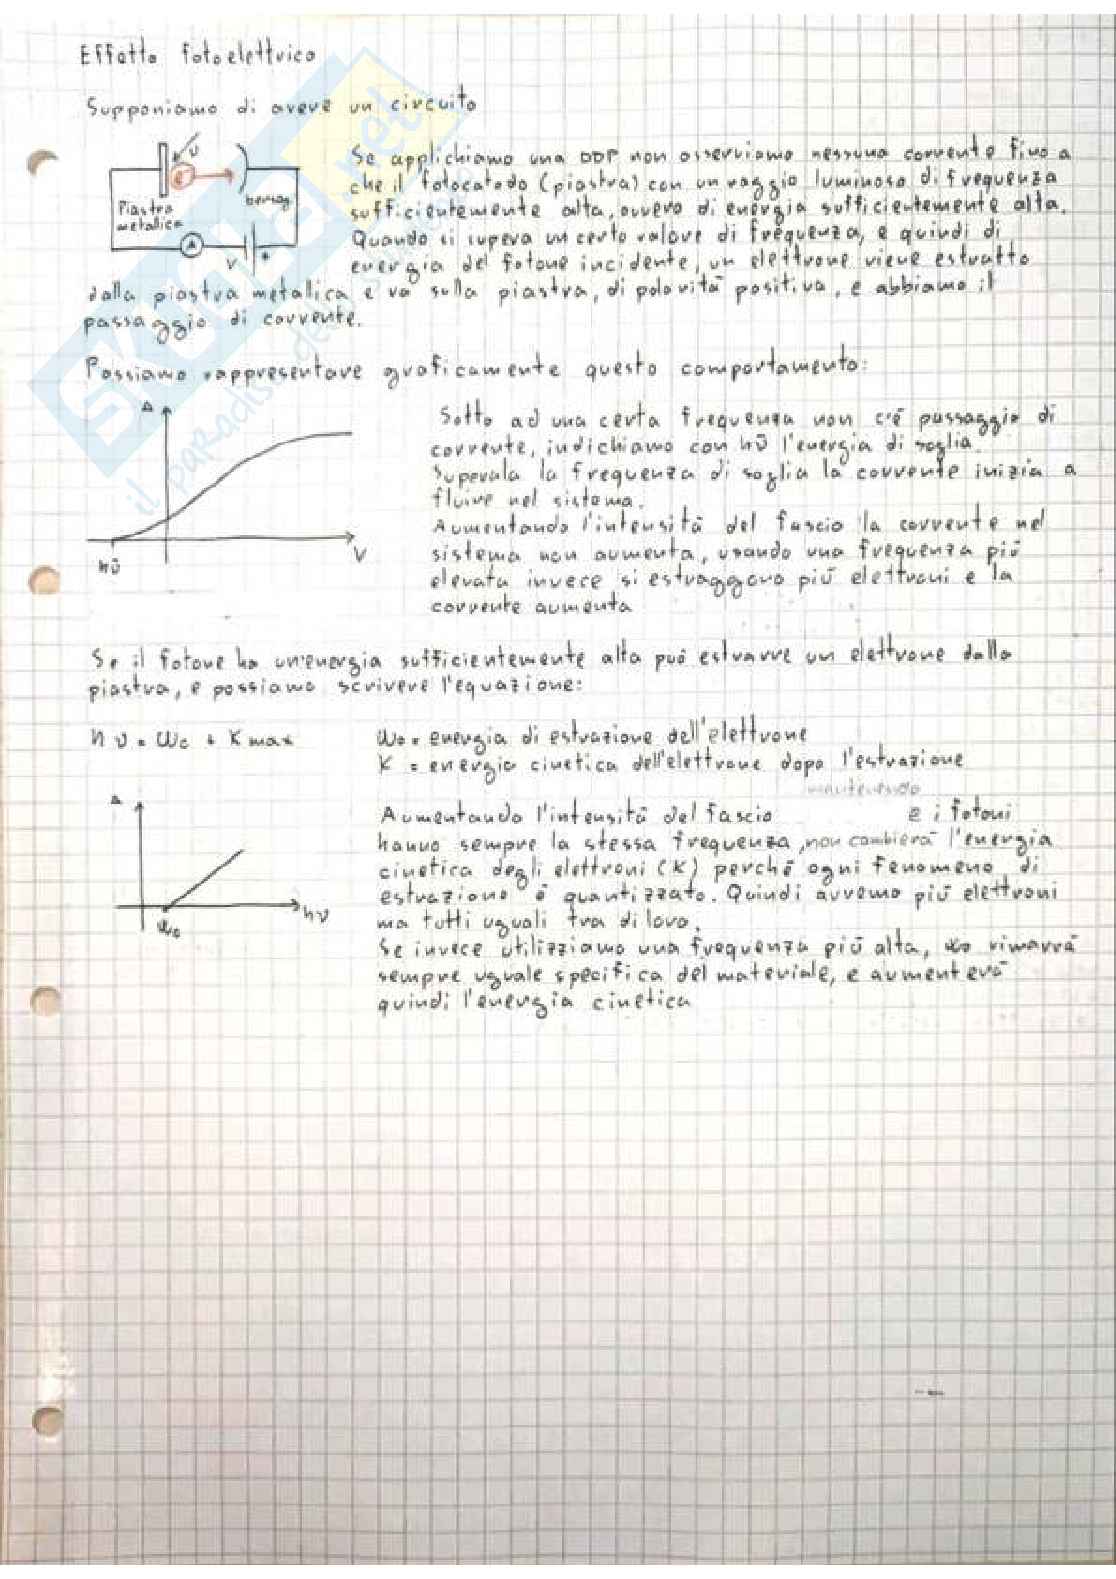 Effetto fotoelettrico
Supponiamo di avere un circuito
ν
e⁻
Piastra
metallica
bersag.
A
V
+
Se applichiamo una DDP non osserviamo nessuna corrente fino a
che il fotocatodo (piastra) con un raggio luminoso di frequenza
sufficientemente alta, ovvero di energia sufficientemente alta.
Quando si supera un certo valore di frequenza, e quindi di
energia del fotone incidente, un elettrone viene estratto
dalla piastra metallica e va sulla piastra, di polarità positiva, e abbiamo il
passaggio di corrente.
Possiamo rappresentare graficamente questo comportamento:
A
V
hν̄
Sotto ad una certa frequenza non c'è passaggio di
corrente, indichiamo con hν̄ l'energia di soglia.
Superata la frequenza di soglia la corrente inizia a
fluire nel sistema.
Aumentando l'intensità del fascio la corrente nel
sistema non aumenta, usando una frequenza più
elevata invece si estraggono più elettroni e la
corrente aumenta
Se il fotone ha un'energia sufficientemente alta può estrarre un elettrone dalla
piastra, e possiamo scrivere l'equazione:
hν = W₀ + K max
W₀ = energia di estrazione dell'elettrone
K = energia cinetica dell'elettrone dopo l'estrazione
mantenendo
A
hν
W₀
Aumentando l'intensità del fascio e i fotoni
hanno sempre la stessa frequenza, non cambierà l'energia
cinetica degli elettroni (K) perché ogni fenomeno di
estrazione è quantizzato. Quindi avremo più elettroni
ma tutti uguali tra di loro.
Se invece utilizziamo una frequenza più alta, W₀ rimarrà
sempre uguale specifica del materiale, e aumenterà
quindi l'energia cinetica
skuola.net
il paradiso